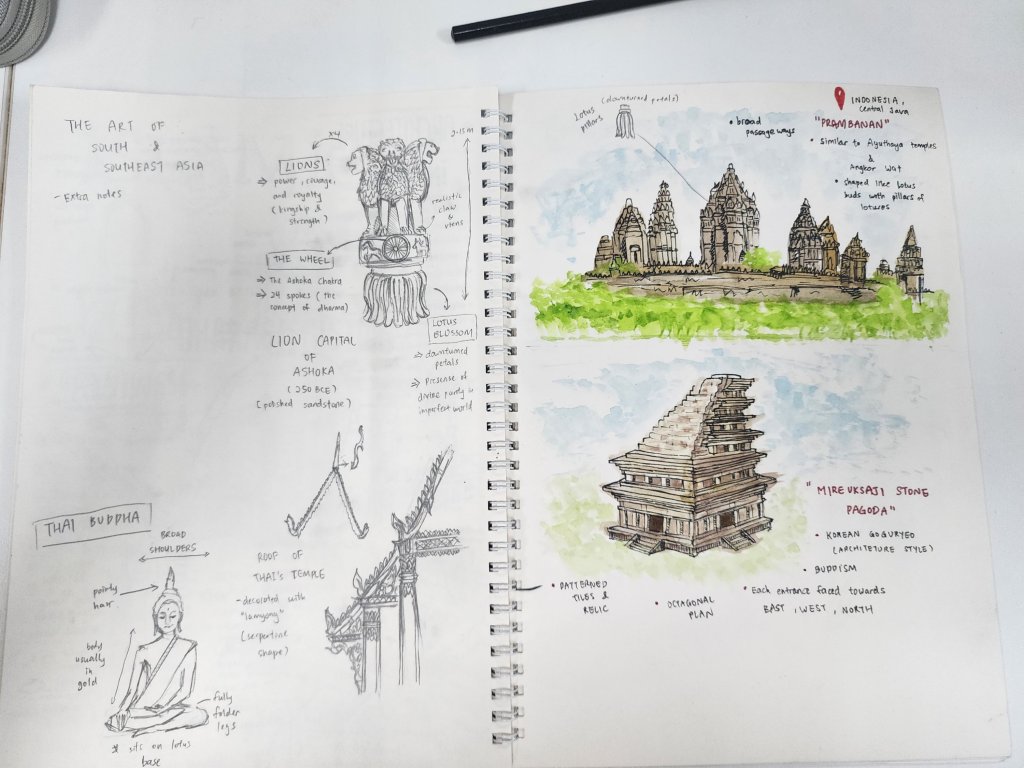 THE ART OF
SOUTH &
SOUTHEAST ASIA
- Extra notes
x4
LIONS
⇒ power, courage,
and royalty
(kingship &
strength)
2.15 m
realistic
claw
&
veins
THE WHEEL
⇒ The Ashoka Chakra
⇒ 24 spokes (the
concept of dharma)
LOTUS
BLOSSOM
⇒ downturned
petals
⇒ Presense of
divine purity in
imperfect world
LION CAPITAL
OF
ASHOKA
(250 BCE)
(polished sandstone)
THAI BUDDHA
BROAD
SHOULDERS
pointy
hair
body
usually
in
gold
fully
folder
legs
* sits on lotus
base
ROOF OF
THAI'S TEMPLE
- decorated with
"lamyong"
(serpentine
shape)
Lotus (downturned petals)
pillars
• broad
passageways
INDONESIA,
Central Java
"PRAMBANAN"
• Similar to Ayuthaya temples
&
Angkor Wat
• shaped like lotus
buds with pillars of
lotuses
"MIREUKSAJI STONE
PAGODA"
• KOREAN GOGURYEO
(ARCHITETURE STYLE)
• BUDDISM
• PATTERNED
TILES &
RELIC
• OCTAGONAL
PLAN
• Each entrance faced towards
EAST, WEST, NORTH